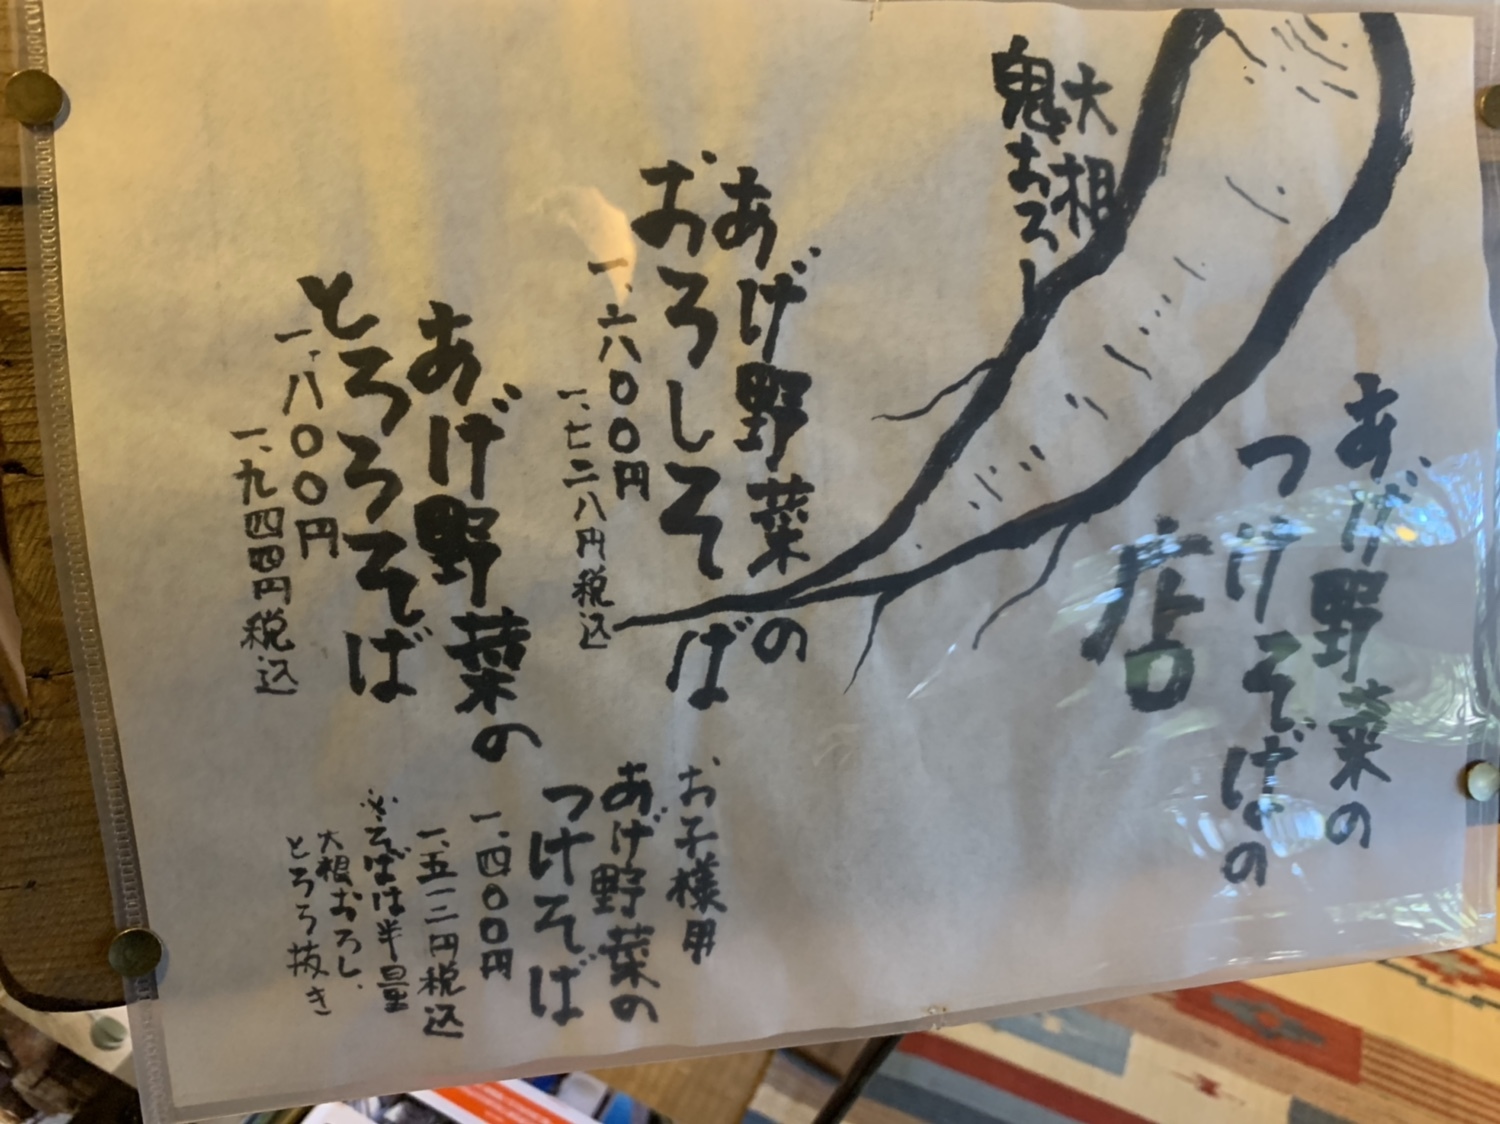 あげ野菜の
つけそばの
店
大根
鬼おろし
あげ野菜の
おろしそば
一、六〇〇円
一、七二八円税込
あげ野菜の
とろろそば
一、八〇〇円
一、九四四円税込
お子様用
あげ野菜の
つけそば
一、四〇〇円
一、五一二円税込
※そばは半量
大根おろし、
とろろ抜き